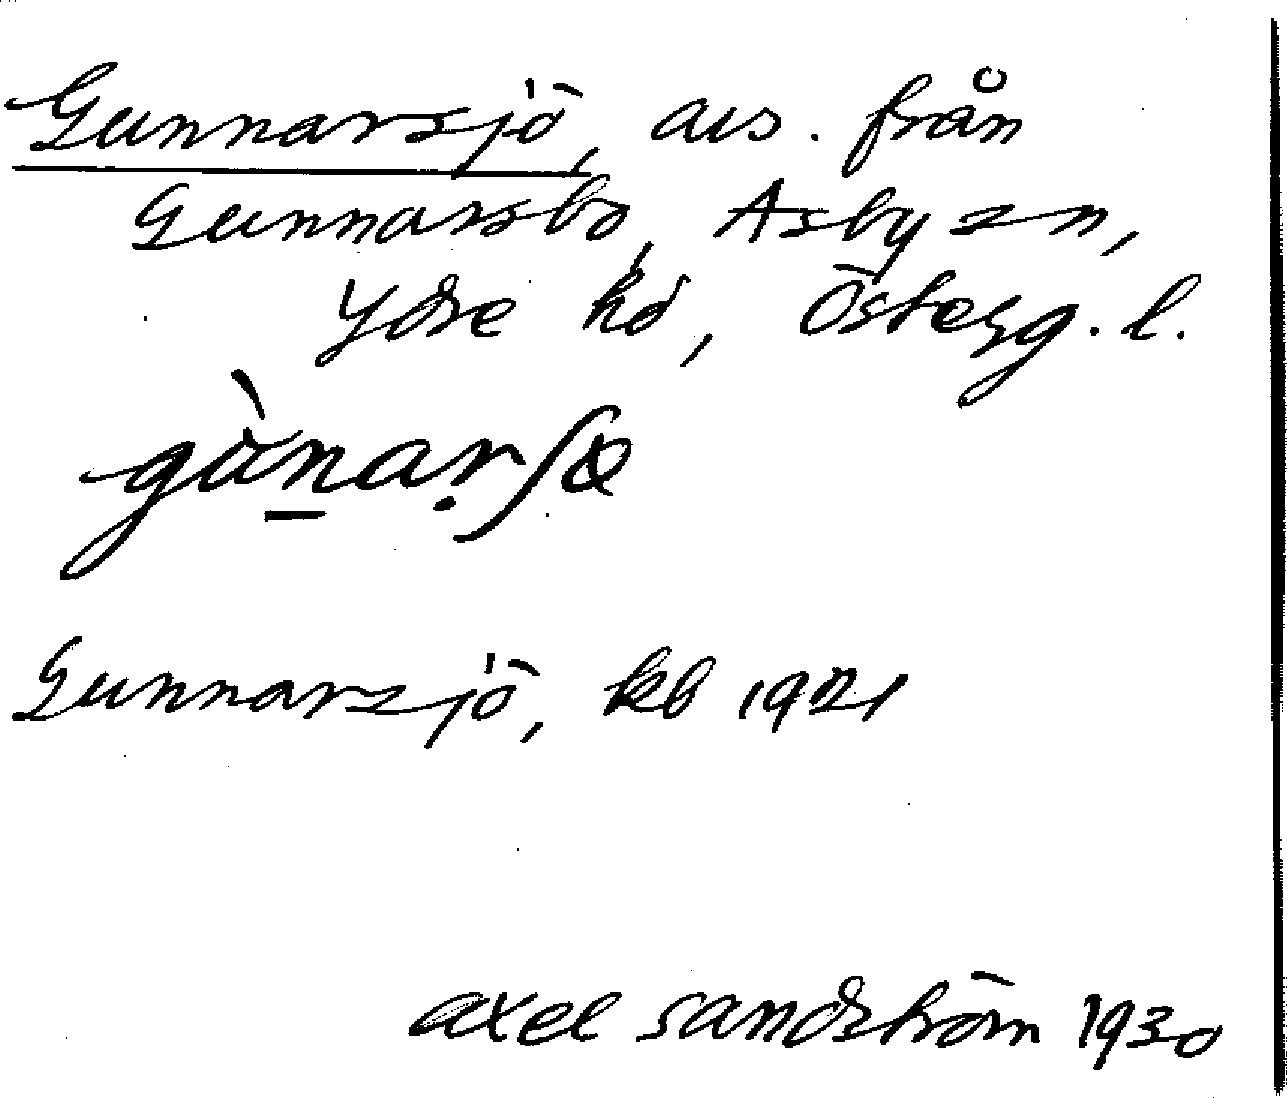 Gunnarsjö, avs. från
Gunnarsbo, Asby sn,
Ydre hd, Österg. l.
Gunnarsjö, kb 1921
axel sandström 1930